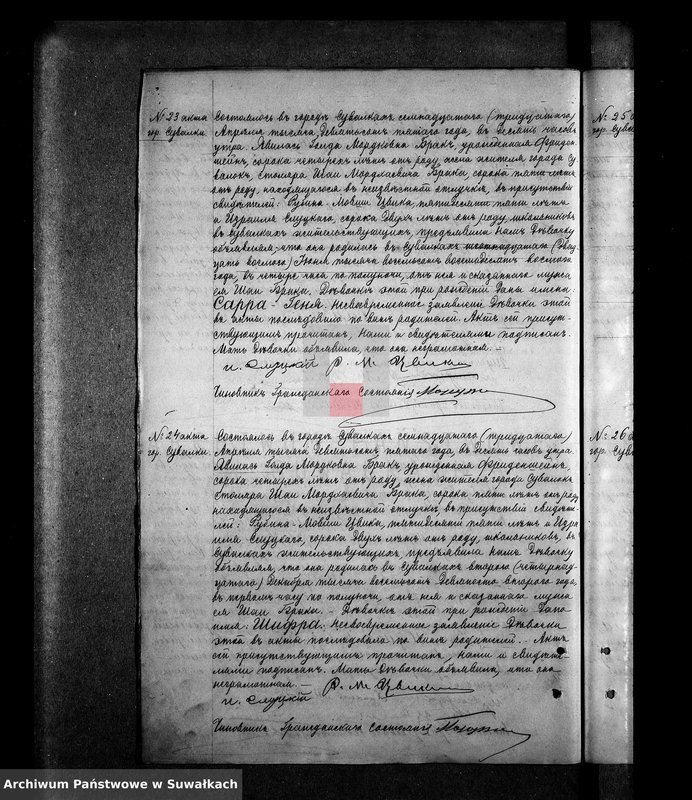 № 23 акта
гор. Сувалки.
Состоялось въ городѣ Сувалкахъ семнадцатаго (тридцатаго)
Апрѣля тысяча девятьсотъ пятаго года, въ десять часовъ
утра. Явилась Голда Мордховна Бракъ, урожденная Фриден-
штейнъ, сорока четырехъ лѣтъ отъ роду, жена жителя города Су-
валокъ, столяра Шаи Мордхаевича Брака, сорока пяти лѣтъ
отъ роду, находящагося въ неизвѣстной отлучкѣ, въ присутствіи
свидѣтелей: Рубина-Мовши Цвика, пятидесяти пяти лѣтъ
и Израиля Слуцкаго, сорока двухъ лѣтъ отъ роду, школьниковъ
въ Сувалкахъ жительствующихъ, предъявила намъ дѣвочку
объявляя, что она родилась въ Сувалкахъ (два-
дцать восьмого) Іюня тысяча восемьсотъ восемьдесятъ восьмого
года, въ четыре часа по полуночи, отъ нея и сказаннаго мужа
ея Шаи Брака. Дѣвочкѣ этой при рожденіи даны имена:
Сарра-Геня. Несвоевременное заявленіе дѣвочки этой
въ акты послѣдовало по винѣ родителей. Актъ сей присут-
ствующимъ прочитанъ, нами и свидѣтелями подписанъ.
Мать дѣвочки объявила, что она неграмотная. —
И. Слуцкій Р. М. Цвикъ
Чиновникъ Гражданскаго Состоянія
№ 24 акта
гор. Сувалки.
Состоялось въ городѣ Сувалкахъ семнадцатаго (тридцатаго)
Апрѣля тысяча девятьсотъ пятаго года, въ десять часовъ утра.
Явилась Голда Мордховна Бракъ урожденная Фриденштейнъ,
сорока четырехъ лѣтъ отъ роду, жена жителя города Сувалокъ
столяра Шаи Мордхаевича Брака, сорока пяти лѣтъ отъ роду
находящагося въ неизвѣстной отлучкѣ, въ присутствіи свидѣте-
лей: Рубина-Мовши Цвика, пятидесяти пяти лѣтъ и Изра-
иля Слуцкаго, сорока двухъ лѣтъ отъ роду, школьниковъ, въ
Сувалкахъ жительствующихъ, предъявила намъ дѣвочку
объявляя, что она родилась въ Сувалкахъ второго (четырнад-
цатаго) Декабря тысяча восемьсотъ девяносто второго года,
въ первомъ часу по полуночи, отъ нея и сказаннаго мужа
ея Шаи Брака. — Дѣвочкѣ этой при рожденіи дано
имя: Шифра. Несвоевременное заявленіе дѣвочки
этой въ акты послѣдовало по винѣ родителей. — Актъ
сей присутствующимъ прочитанъ, нами и свидѣте-
лями подписанъ. Мать дѣвочки объявила, что она
неграмотная. —
Р. М. Цвикъ
И. Слуцкій
Чиновникъ Гражданскаго Состоянія
№ 25
гор. Сува
№ 26
гор. Сува
Archiwum Państwowe w Suwałkach